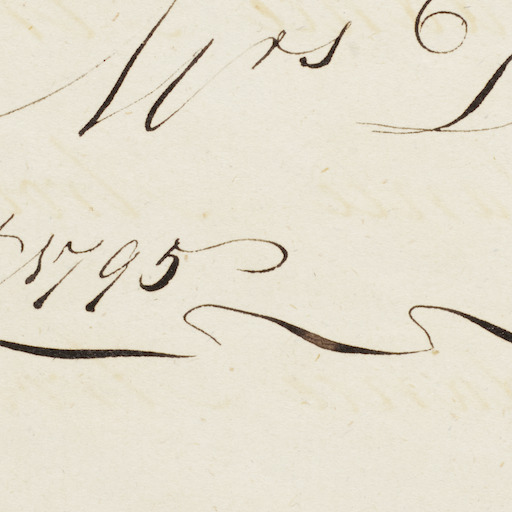 Mrs
1795